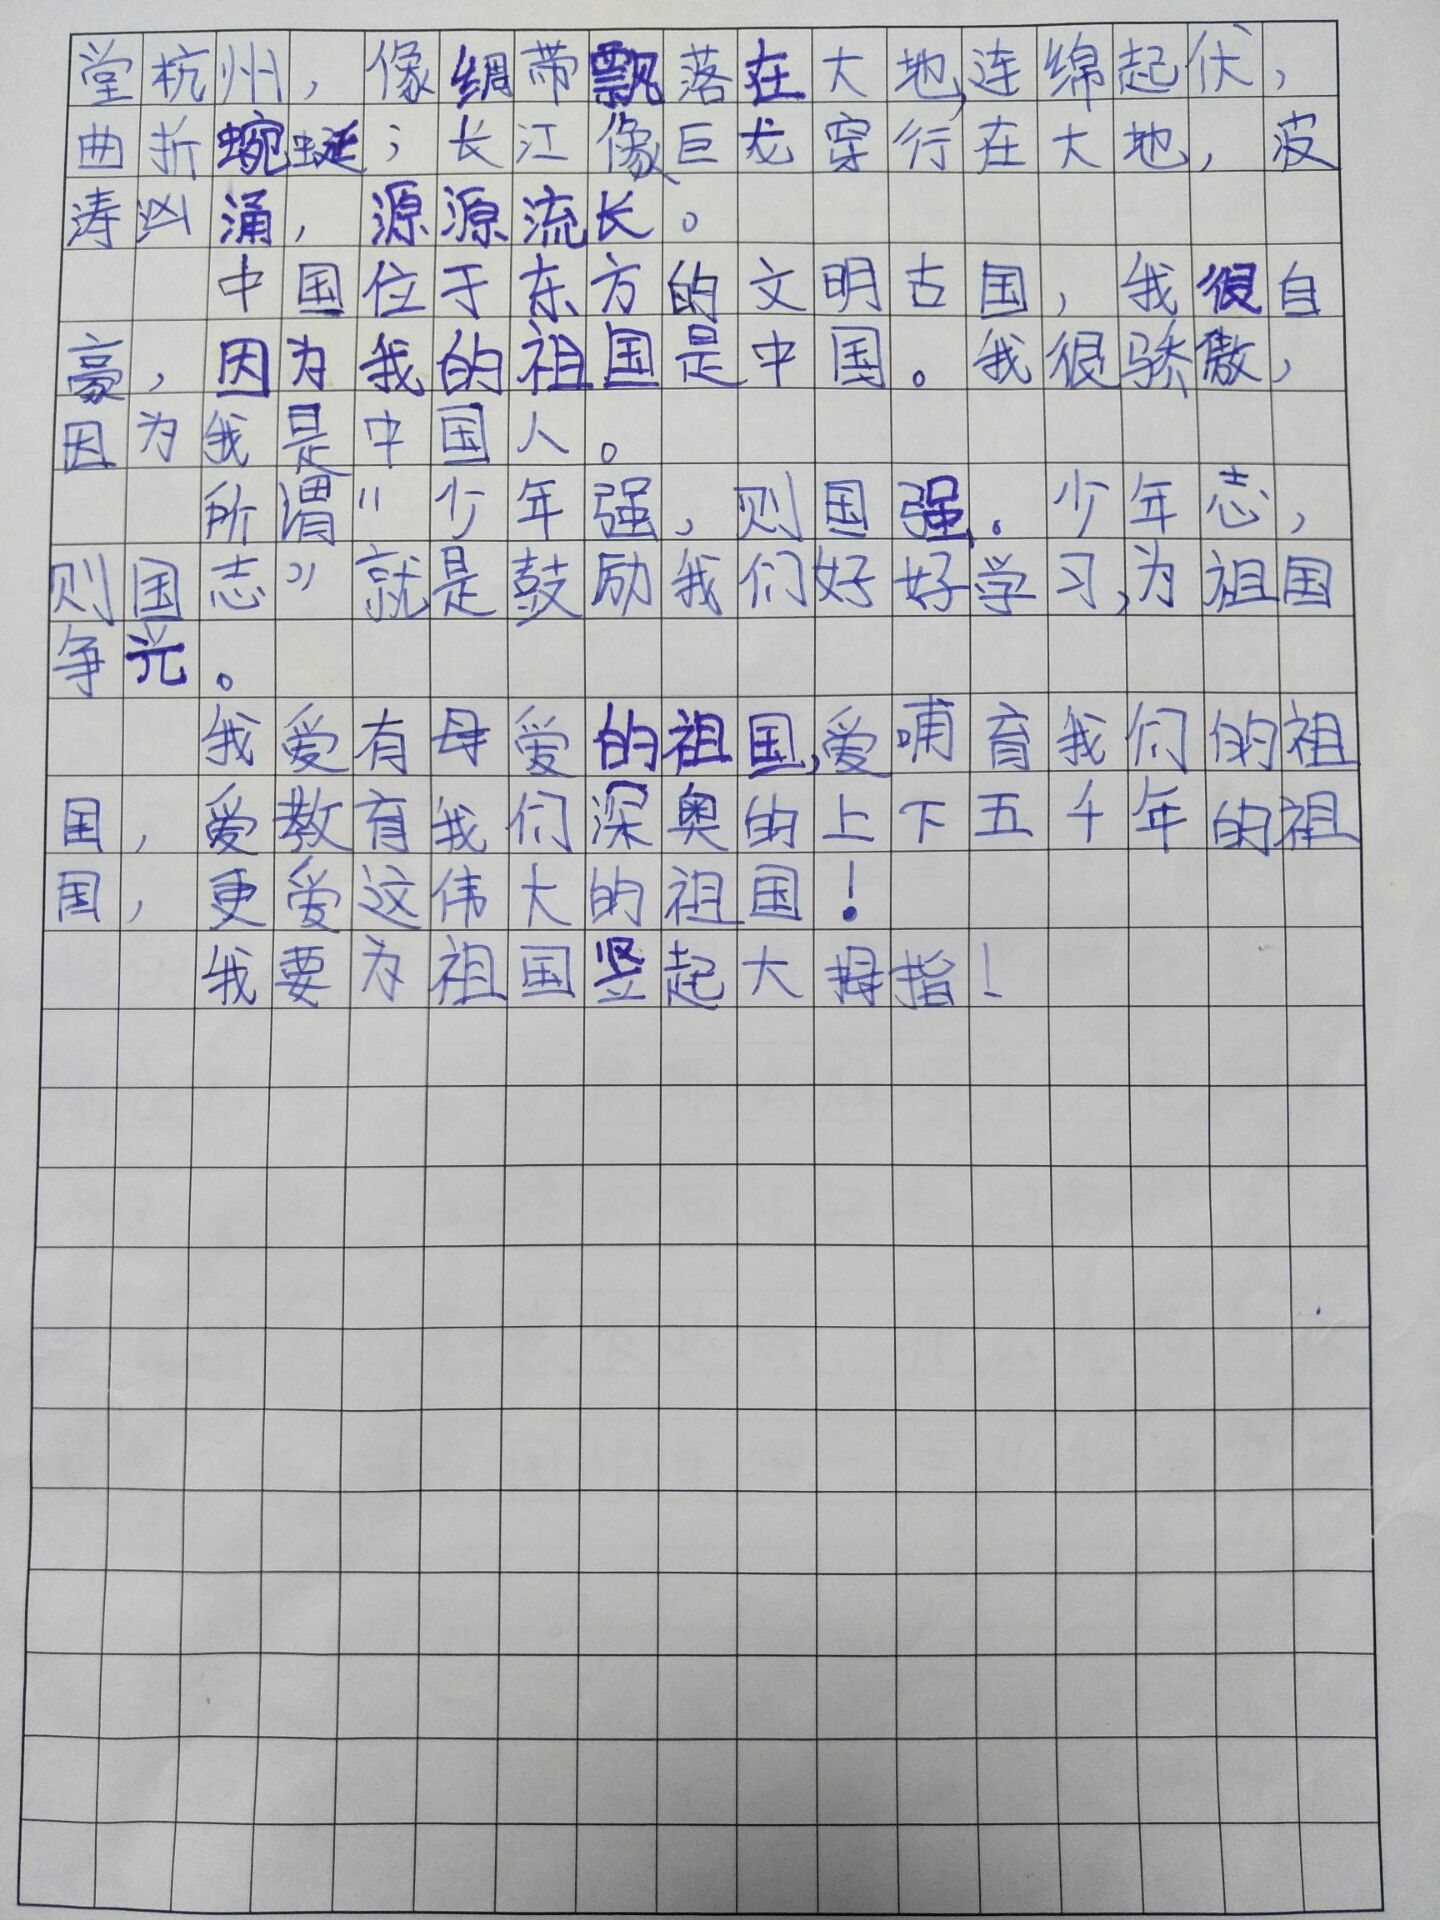 堂杭州，像绸带飘落在大地,连绵起伏，
曲折蜿蜒；长江像巨龙穿行在大地，波
涛汹涌，源源流长。
中国位于东方的文明古国，我很自
豪，因为我的祖国是中国。我很骄傲，
因为我是中国人。
所谓“少年强，则国强。少年志，
则国志”就是鼓励我们好好学习,为祖国
争光。
我爱有母爱的祖国,爱哺育我们的祖
国，爱教育我们深奥的上下五千年的祖
国，更爱这伟大的祖国！
我要为祖国竖起大拇指！